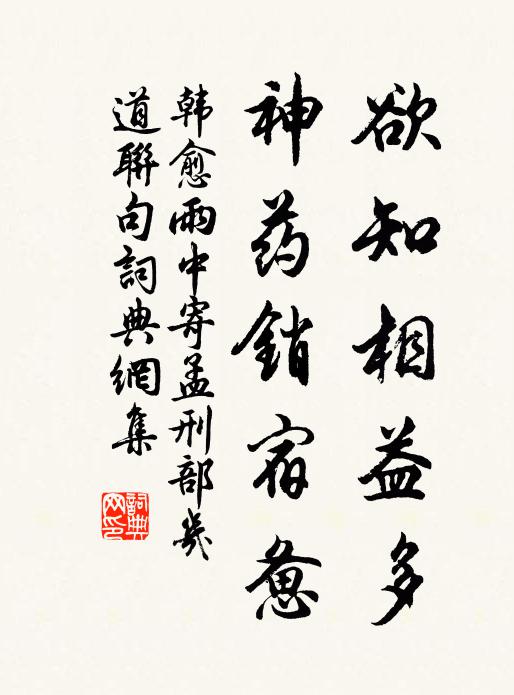 欲知相益多
神药銷宿惫
韩愈雨中寄孟刑部幾
道聯句詞典網集
詞典
网印